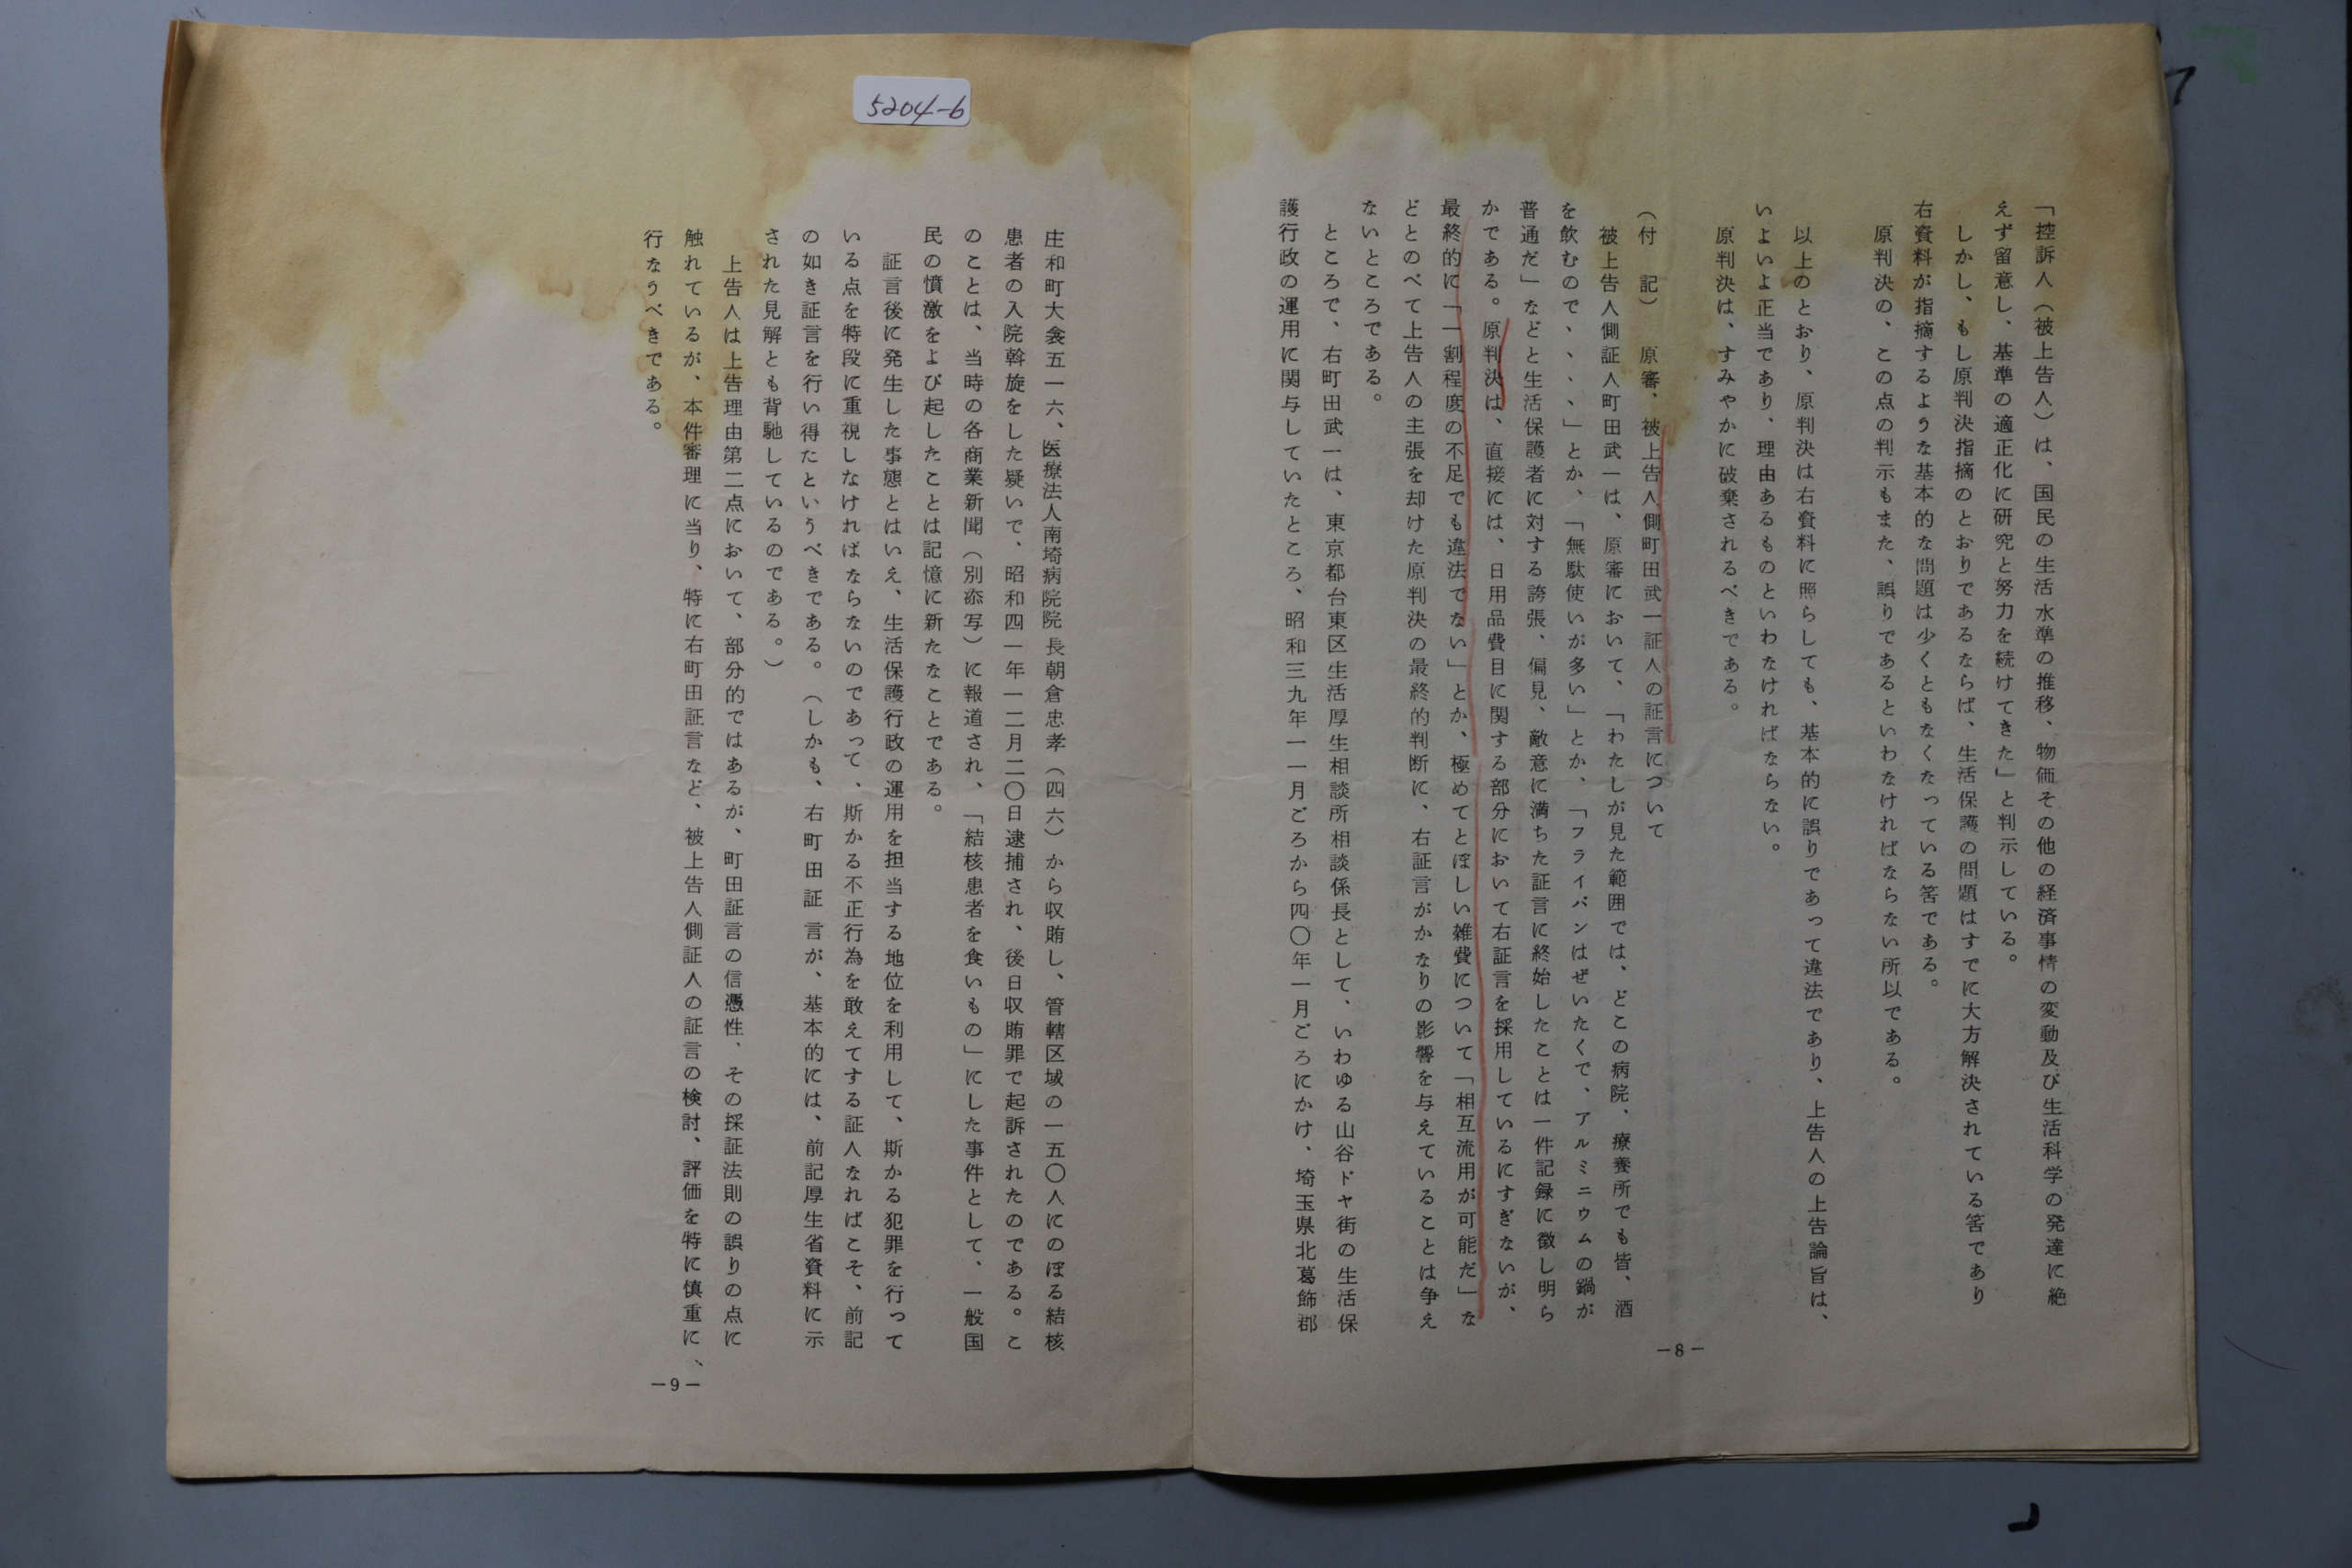 「控訴人（被上告人）は、国民の生活水準の推移、物価その他の経済事情の変動及び生活科学の発達に絶
えず留意し、基準の適正化に研究と努力を続けてきた」と判示している。
しかし、もし原判決指摘のとおりであるならば、生活保護の問題はすでに大方解決されている筈であり
右資料が指摘するような基本的な問題は少くともなくなっている筈である。
原判決の、この点の判示もまた、誤りであるといわなければならない所以である。
以上のとおり、原判決は右資料に照らしても、基本的に誤りであって違法であり、上告人の上告論旨は、
いよいよ正当であり、理由あるものといわなければならない。
原判決は、すみやかに破棄されるべきである。
（付　記）　原審、被上告人側町田武一証人の証言について
被上告人側証人町田武一は、原審において、「わたしが見た範囲では、どこの病院、療養所でも皆、酒
を飲むので、、、、」とか、「無駄使いが多い」とか、「フライパンはぜいたくで、アルミニウムの鍋が
普通だ」などと生活保護者に対する誇張、偏見、敵意に満ちた証言に終始したことは一件記録に徴し明ら
かである。原判決は、直接には、日用品費目に関する部分において右証言を採用しているにすぎないが、
最終的に「一割程度の不足でも違法でない」とか、極めてとぼしい雑費について「相互流用が可能だ」な
どとのべて上告人の主張を却けた原判決の最終的判断に、右証言がかなりの影響を与えていることは争え
ないところである。
ところで、右町田武一は、東京都台東区生活厚生相談所相談係長として、いわゆる山谷ドヤ街の生活保
護行政の運用に関与していたところ、昭和三九年一一月ごろから四〇年一月ごろにかけ、埼玉県北葛飾郡
－8－
5204-b
庄和町大衾五一六、医療法人南埼病院院長朝倉忠孝（四六）から収賄し、管轄区域の一五〇人にのぼる結核
患者の入院斡旋をした疑いで、昭和四一年一二月二〇日逮捕され、後日収賄罪で起訴されたのである。こ
のことは、当時の各商業新聞（別添写）に報道され、「結核患者を食いもの」にした事件として、一般国
民の憤激をよび起したことは記憶に新たなことである。
証言後に発生した事態とはいえ、生活保護行政の運用を担当する地位を利用して、斯かる犯罪を行って
いる点を特段に重視しなければならないのであって、斯かる不正行為を敢えてする証人なればこそ、前記
の如き証言を行い得たというべきである。（しかも、右町田証言が、基本的には、前記厚生省資料に示
された見解とも背馳しているのである。）
上告人は上告理由第二点において、部分的ではあるが、町田証言の信憑性、その採証法則の誤りの点に
触れているが、本件審理に当り、特に右町田証言など、被上告人側証人の証言の検討、評価を特に慎重に、
行なうべきである。
－9－